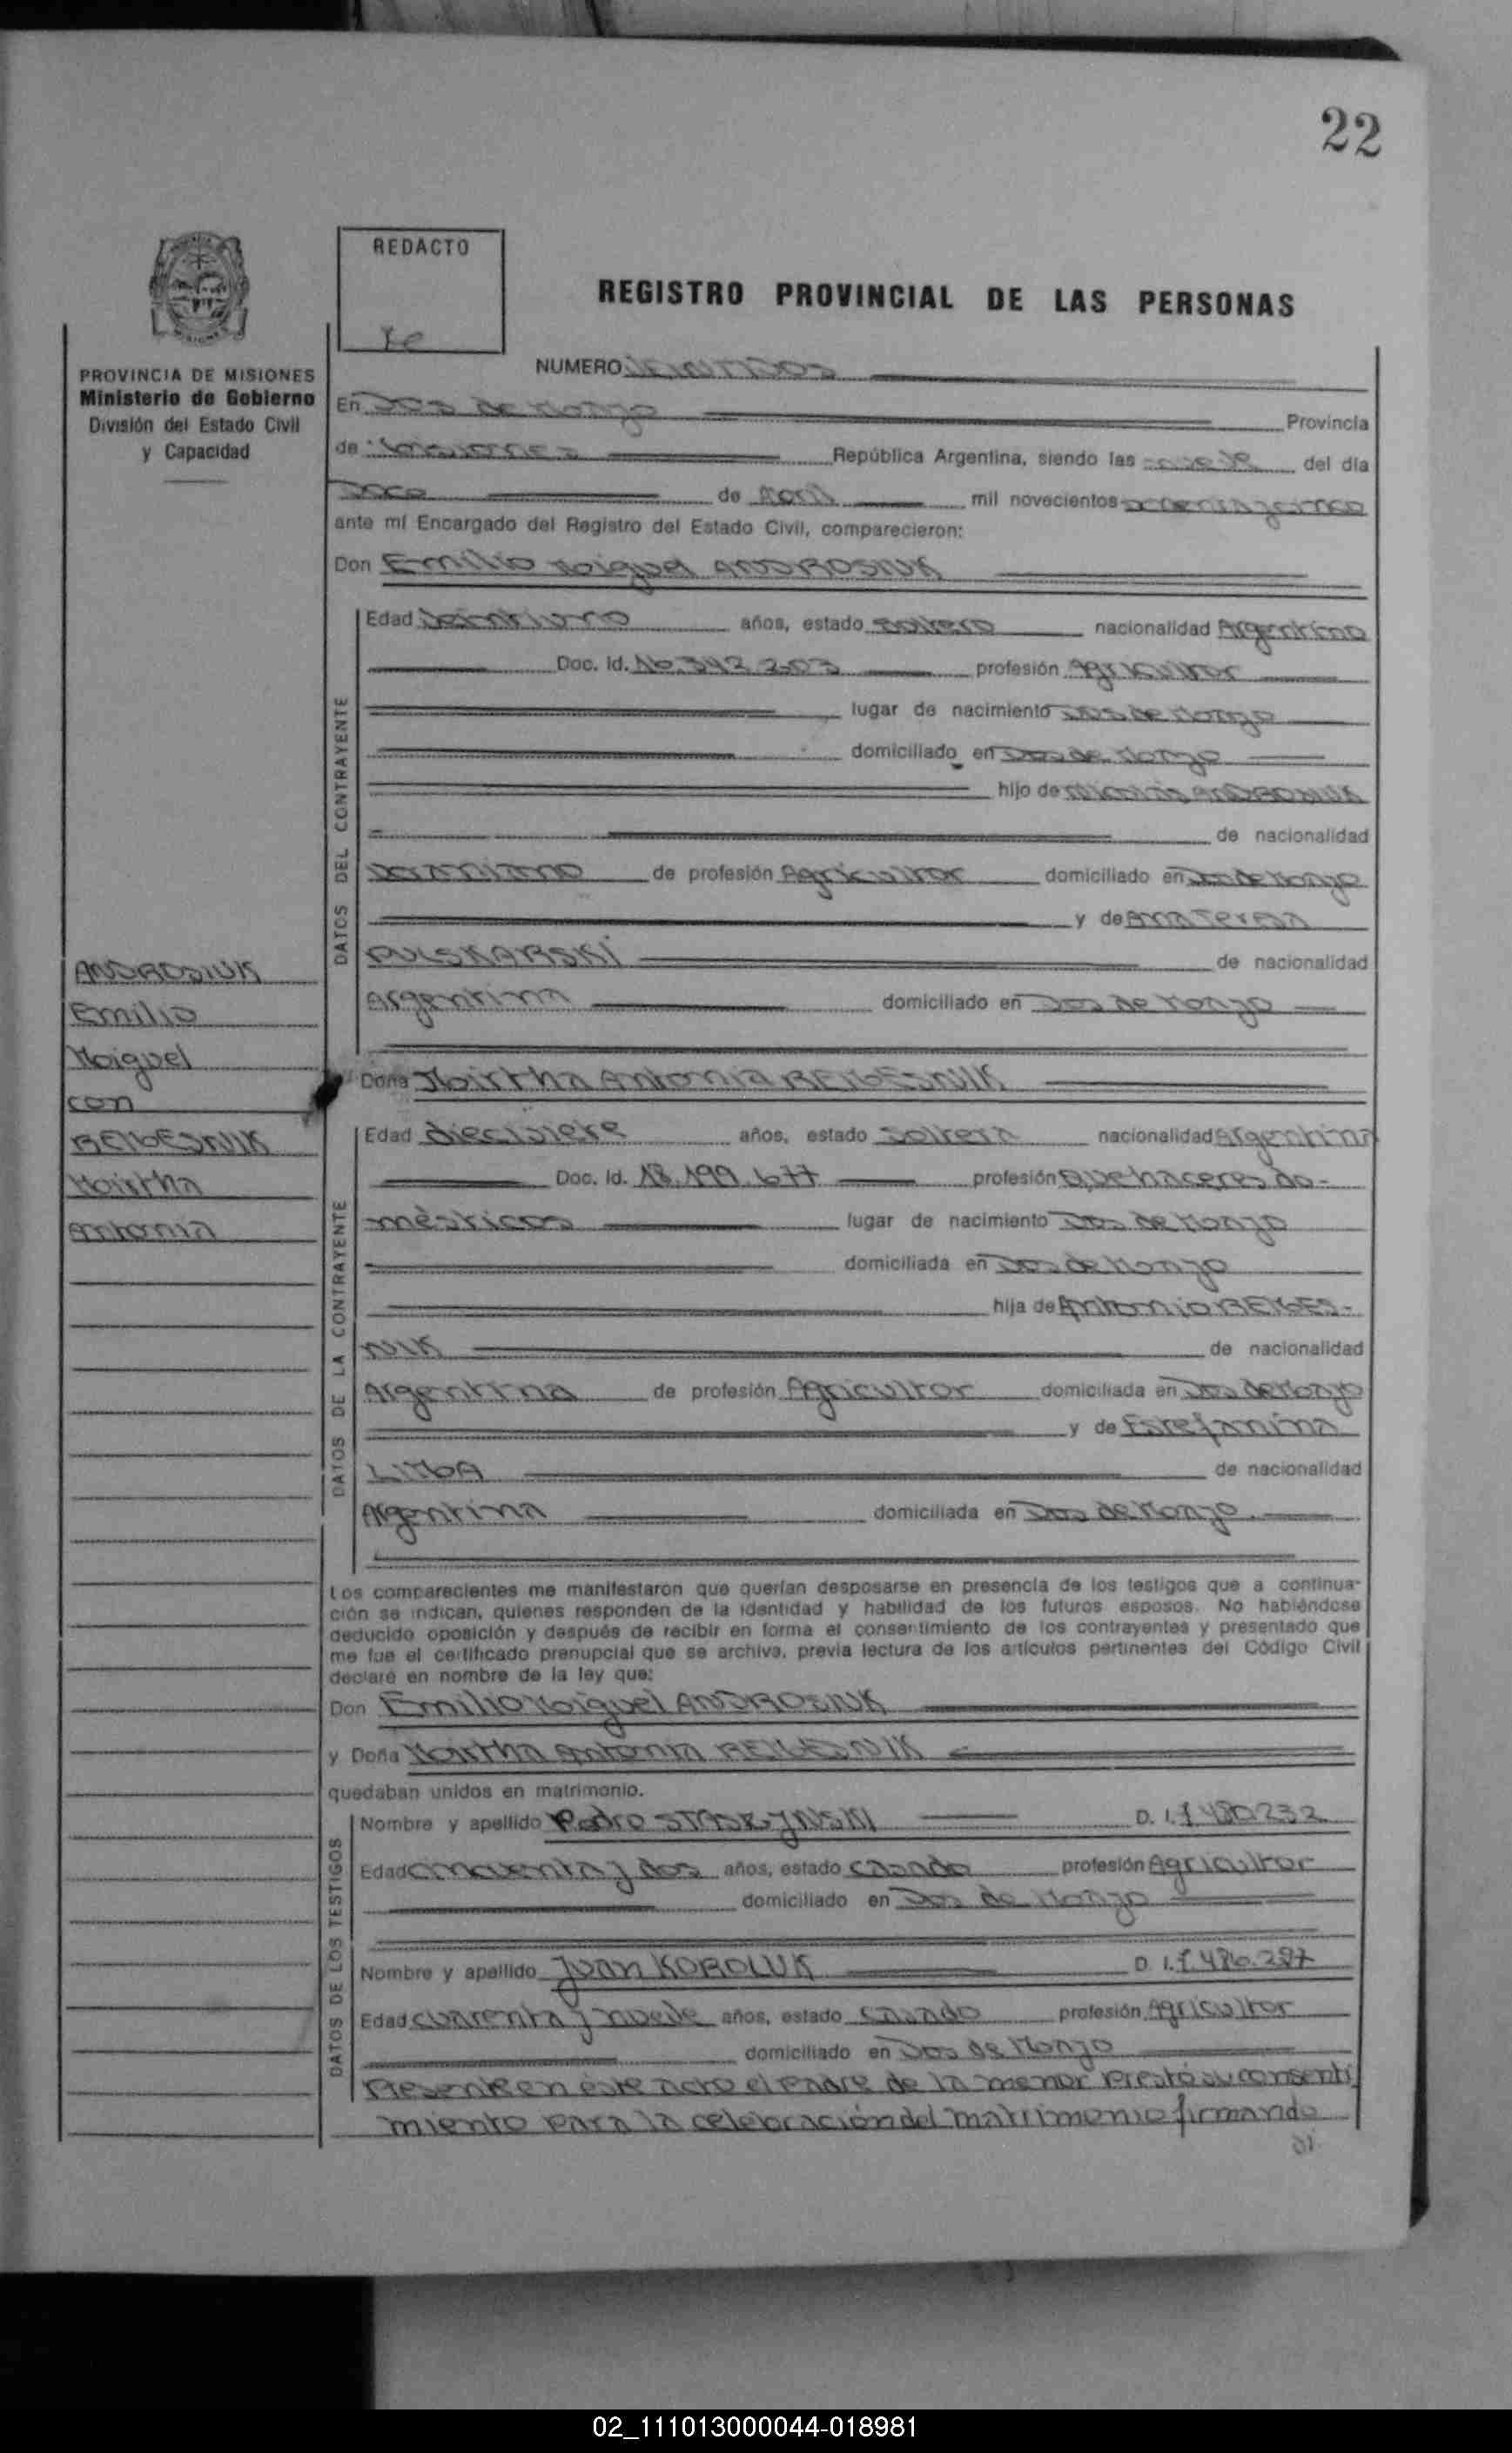 22
REDACTO
REGISTRO PROVINCIAL DE LAS PERSONAS
PROVINCIA DE MISIONES
Ministerio de Gobierno
División del Estado Civil
y Capacidad
NUMERO VEINTIDOS
En Dos de Mayo Provincia
de Misiones República Argentina, siendo las nueve del día
Doce de Abril mil novecientos ochenta y cinco
ante mí Encargado del Registro del Estado Civil, comparecieron:
Don Emilio Miguel ANDROSIUK
DATOS DEL CONTRAYENTE
Edad Veintiuno años, estado soltero nacionalidad Argentino
Doc. Id. profesión Agricultor
lugar de nacimiento Dos de Mayo
domiciliado en Dos de Mayo
hijo de ANDROSIUK
de nacionalidad
de profesión Agricultor domiciliado en Dos de Mayo
y de Ana Teresa
de nacionalidad
Argentina domiciliado en Dos de Mayo
ANDROSIUK
Emilio
Miguel
con
BEMBESNUK
Mirtha
Antonia
Doña Mirtha Antonia
DATOS DE LA CONTRAYENTE
Edad diecisiete años, estado Soltera nacionalidad Argentina
Doc. Id. 18.199.677 profesión Quehaceres do-
mésticos lugar de nacimiento Dos de Mayo
domiciliada en Dos de Mayo
hija de Antonio
NUK de nacionalidad
Argentina de profesión Agricultor domiciliada en Dos de Mayo
y de Estefanina
LIMA de nacionalidad
Argentina domiciliada en Dos de Mayo.
Los comparecientes me manifestaron que querían desposarse en presencia de los testigos que a continua-
ción se indican, quienes responden de la identidad y habilidad de los futuros esposos. No habiéndose
deducido oposición y después de recibir en forma el consentimiento de los contrayentes y presentado que
me fue el certificado prenupcial que se archiva, previa lectura de los artículos pertinentes del Código Civil
declaré en nombre de la ley que:
Don Emilio Miguel ANDROSIUK
y Doña Mirtha Antonia
quedaban unidos en matrimonio.
DATOS DE LOS TESTIGOS
Nombre y apellido Pedro D. I. 7.480.232
Edad cincuenta y dos años, estado casado profesión Agricultor
domiciliado en Dos de Mayo
Nombre y apellido Juan KOROLUK D. I. 7.486.287
Edad cuarenta y nueve años, estado casado profesión Agricultor
domiciliado en Dos de Mayo
Presente en éste acto el Padre de la menor Prestó su consenti
miento para la celebración del matrimonio firmando
02_111013000044-018981